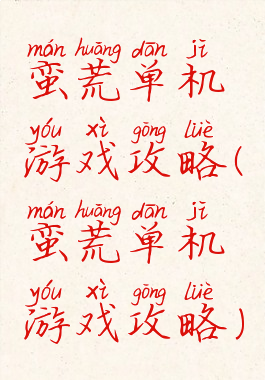 mán huāng dān jī
蛮荒单机
yóu xì gōng lüè
游戏攻略(
mán huāng dān jī
蛮荒单机
yóu xì gōng lüè
游戏攻略)